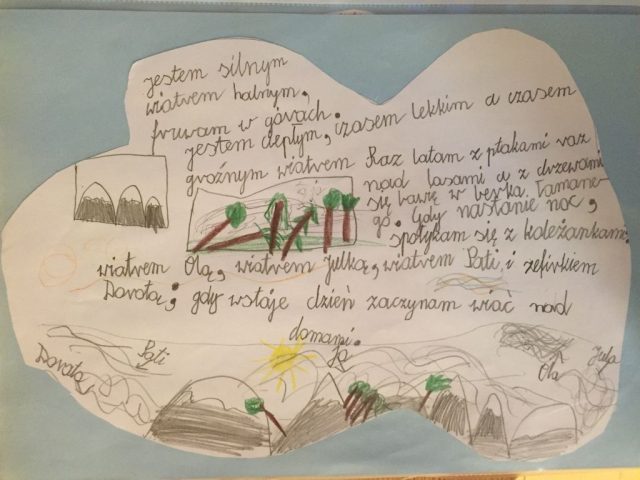 jestem silnym
wiatrem halnym,
fruwam w górach.
jestem ciepłym, czasem lekkim a czasem
groźnym wiatrem
Raz latam z ptakami raz
nad lasami a z drzewami
się bawię w berka łamane-
go. Gdy nastanie noc,
spotykam się z koleżankami:
wiatrem Olą, wiatrem Julką, wiatrem Pati, i zefirkiem
Dorotą; gdy wstaje dzień zaczynam wiać nad
domami.
Dorota
Pati
Ja
Ola
Jula